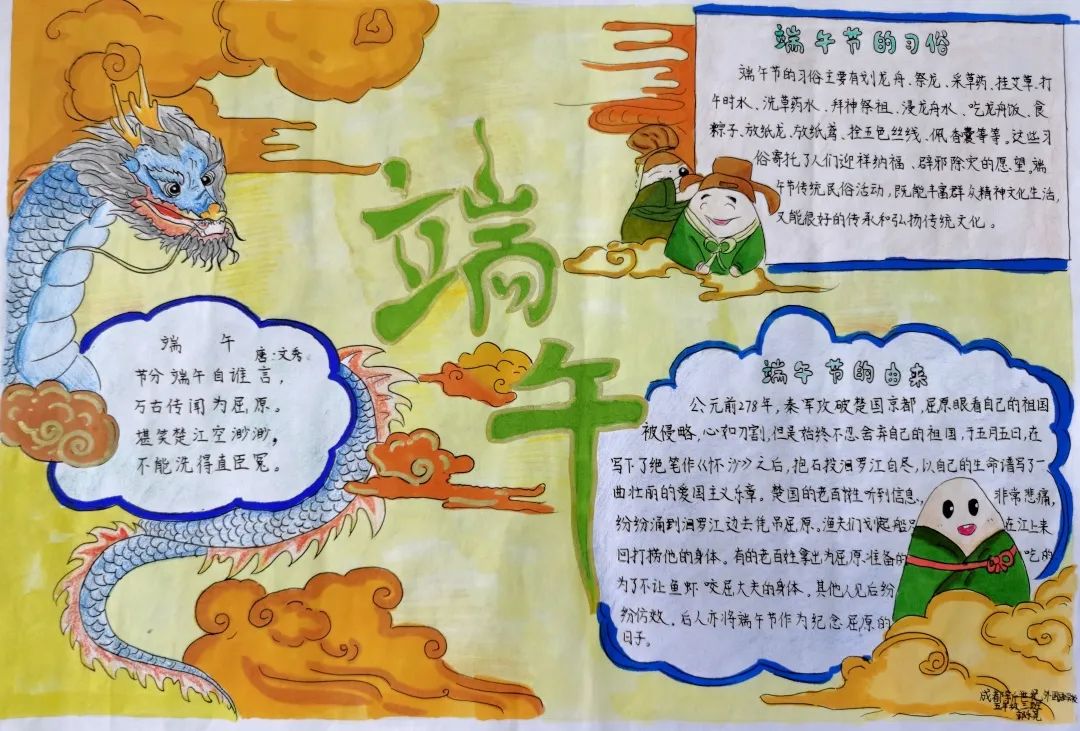 端午节的习俗
端午节的习俗主要有划龙舟、祭龙、采草药、挂艾草、打
午时水、洗草药水、拜神祭祖、浸龙舟水、吃龙舟饭、食
粽子、放纸龙、放纸鸢、拴五色丝线、佩香囊等等。这些习
俗寄托了人们迎祥纳福、辟邪除灾的愿望。端
午节传统民俗活动,既能丰富群众精神文化生活,
又能很好的传承和弘扬传统文化。
端午
端 午
唐:文秀
节分端午自谁言,
万古传闻为屈原。
堪笑楚江空渺渺,
不能洗得直臣冤。
端午节的由来
公元前278年,秦军攻破楚国京都,屈原眼看自己的祖国
被侵略,心如刀割,但是始终不忍舍弃自己的祖国,于五月五日,在
写下了绝笔作《怀沙》之后,抱石投汨罗江自尽,以自己的生命谱写了一
曲壮丽的爱国主义乐章。楚国的老百姓听到信息, 非常悲痛,
纷纷涌到汨罗江边去凭吊屈原。渔夫们划起船 在江上来
回打捞他的身体。有的老百姓拿出为屈原准备的 吃的
为了不让鱼虾咬屈大夫的身体。其他人见后纷
纷仿效。后人亦将端午节作为纪念屈原的
日子。
成都新世纪外国语学校
五年级三班